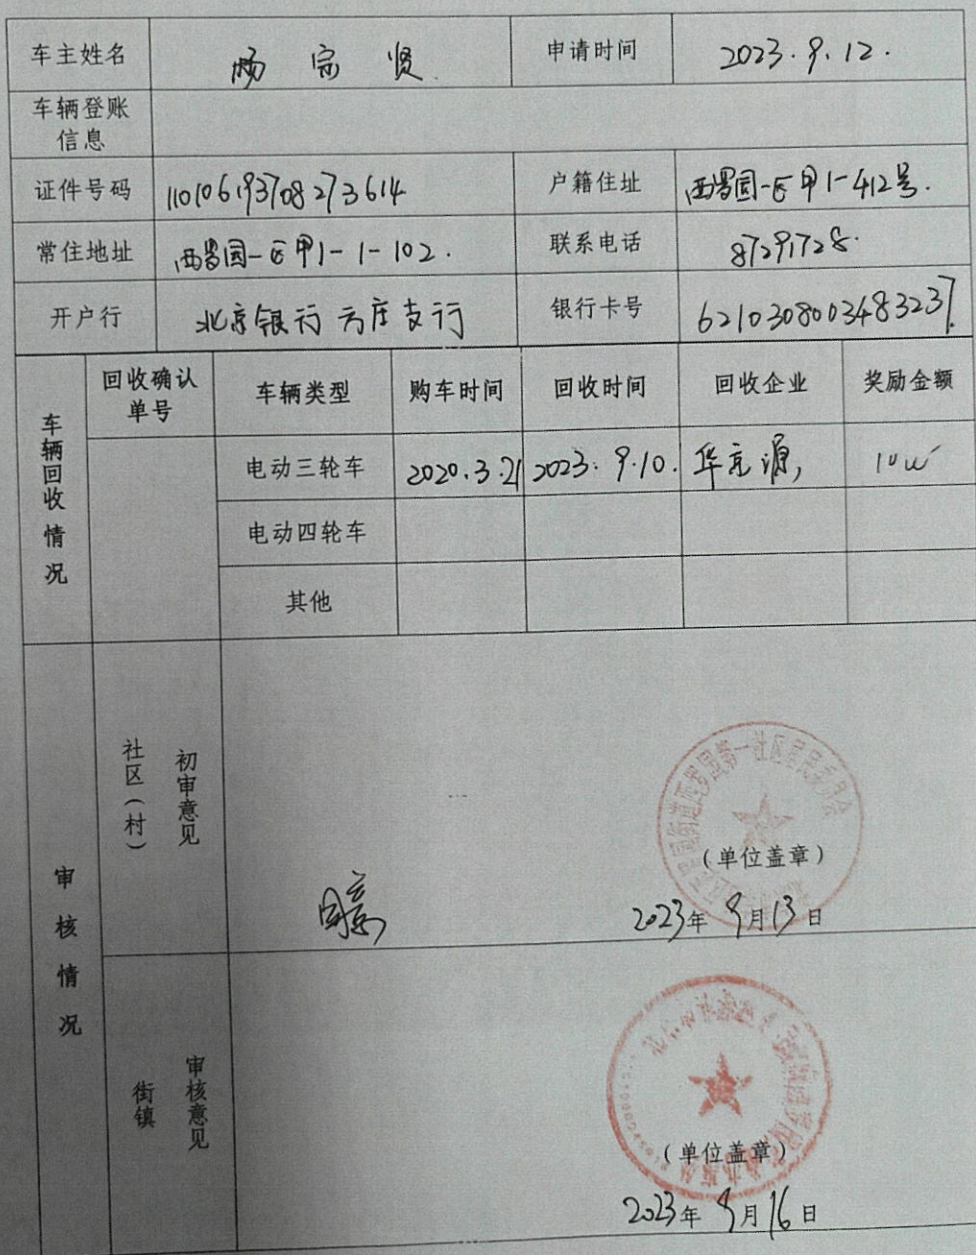 车主姓名 杨宗贤 申请时间 2023.9.12.
车辆登账
信息
证件号码 110106193708273614 户籍住址 西罗园一区甲1-412号.
常住地址 西罗园一区甲1-1-102. 联系电话 87291728.
开户行 北京银行方庄支行 银行卡号 6210308003483237.
车辆回收情况
回收确认
单号
车辆类型 购车时间 回收时间 回收企业 奖励金额
电动三轮车 2020.3.21 2023.9.10. 华京源,
电动四轮车
其他
审核情况
社区(村)
初审意见
西罗园第一社区居民委员会
(单位盖章)
同意
2023年9月13日
街镇
审核意见
(单位盖章)
2023年9月16日